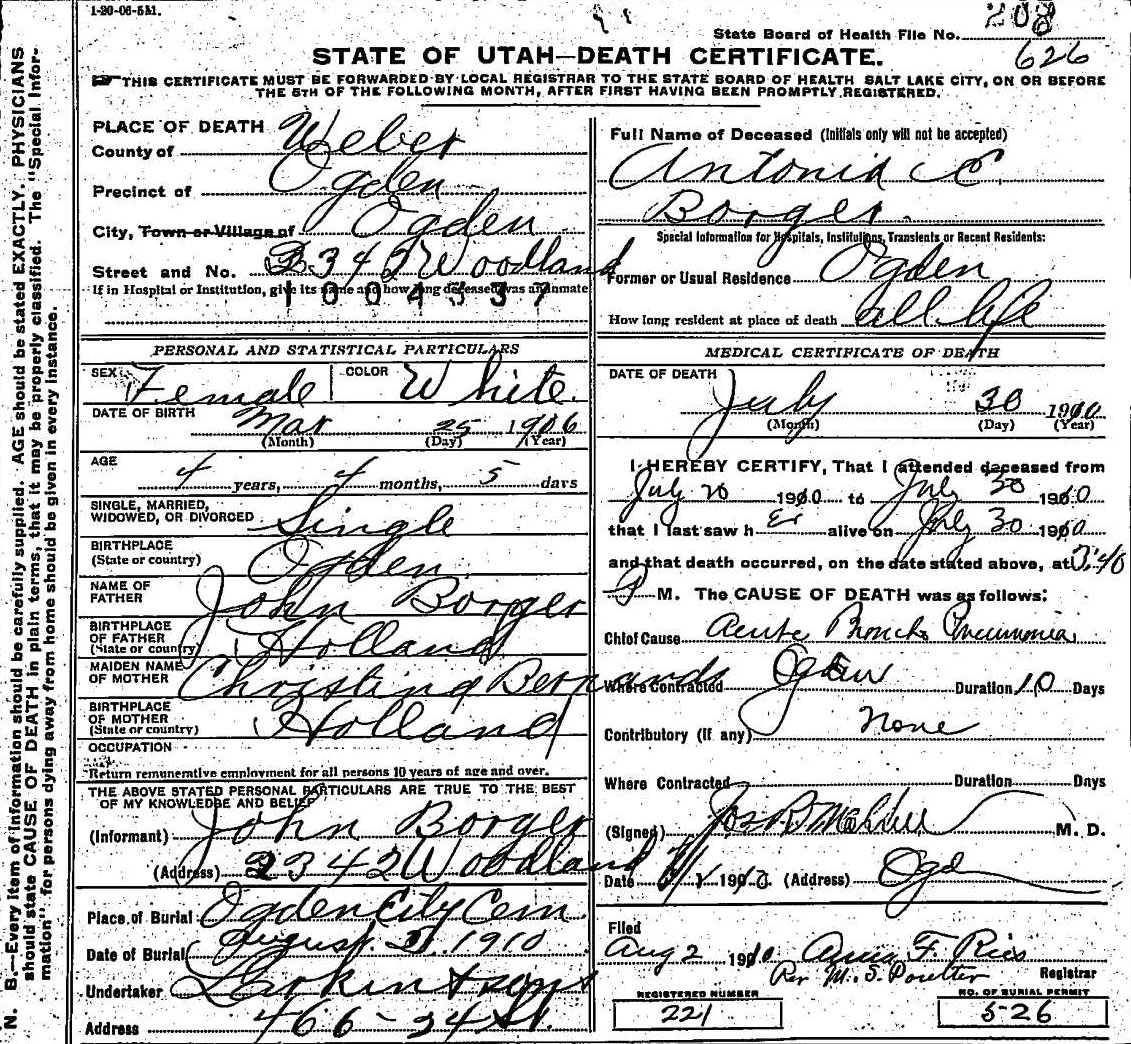 1-20-06-5M.
208
State Board of Health File No.
626
STATE OF UTAH—DEATH CERTIFICATE.
THIS CERTIFICATE MUST BE FORWARDED BY LOCAL REGISTRAR TO THE STATE BOARD OF HEALTH SALT LAKE CITY, ON OR BEFORE
THE 5TH OF THE FOLLOWING MONTH, AFTER FIRST HAVING BEEN PROMPTLY REGISTERED.
N. B.—Every item of information should be carefully supplied. AGE should be stated EXACTLY. PHYSICIANS
should state CAUSE OF DEATH in plain terms, that it may be properly classified. The "Special Infor-
mation" for persons dying away from home should be given in every instance.
PLACE OF DEATH
County of Weber
Precinct of Ogden
City, Town or Village of Ogden
Street and No. 2342 Woodland
If in Hospital or Institution, give its name and how long deceased was an inmate
1004337
PERSONAL AND STATISTICAL PARTICULARS
SEX Female COLOR White
DATE OF BIRTH Mar 25 1906
(Month) (Day) (Year)
AGE 4 years, 4 months, 5 days
SINGLE, MARRIED,
WIDOWED, OR DIVORCED Single
BIRTHPLACE
(State or country) Ogden
NAME OF
FATHER John Borger
BIRTHPLACE
OF FATHER
(State or country) Holland
MAIDEN NAME
OF MOTHER Christina Bernards
BIRTHPLACE
OF MOTHER
(State or country) Holland
OCCUPATION
Return remunerative employment for all persons 10 years of age and over.
THE ABOVE STATED PERSONAL PARTICULARS ARE TRUE TO THE BEST
OF MY KNOWLEDGE AND BELIEF
(Informant) John Borger
(Address) 2342 Woodland
Place of Burial Ogden City Cem
Date of Burial August 1910
Undertaker Larkin & Sons
Address 466-24 St.
Full Name of Deceased (Initials only will not be accepted)
Antonia C.
Borger
Special Information for Hospitals, Institutions, Transients or Recent Residents:
Former or Usual Residence Ogden
How long resident at place of death all life
MEDICAL CERTIFICATE OF DEATH
DATE OF DEATH
July 30 1910
(Month) (Day) (Year)
I HEREBY CERTIFY, That I attended deceased from
July 20 1910 to July 30 1910
that I last saw h er alive on July 30 1910
and that death occurred, on the date stated above, at 3:40
P M. The CAUSE OF DEATH was as follows:
Chief Cause Acute Broncho Pneumonia
Where Contracted Ogden Duration 10 Days
Contributory (If any) None
Where Contracted Duration Days
(Signed) M. D.
Date 1910 (Address) Ogd
Filed
Aug 2 1910 Anna F. Ries
Per M. S. Poulter Registrar
REGISTERED NUMBER
221
NO. OF BURIAL PERMIT
5-26